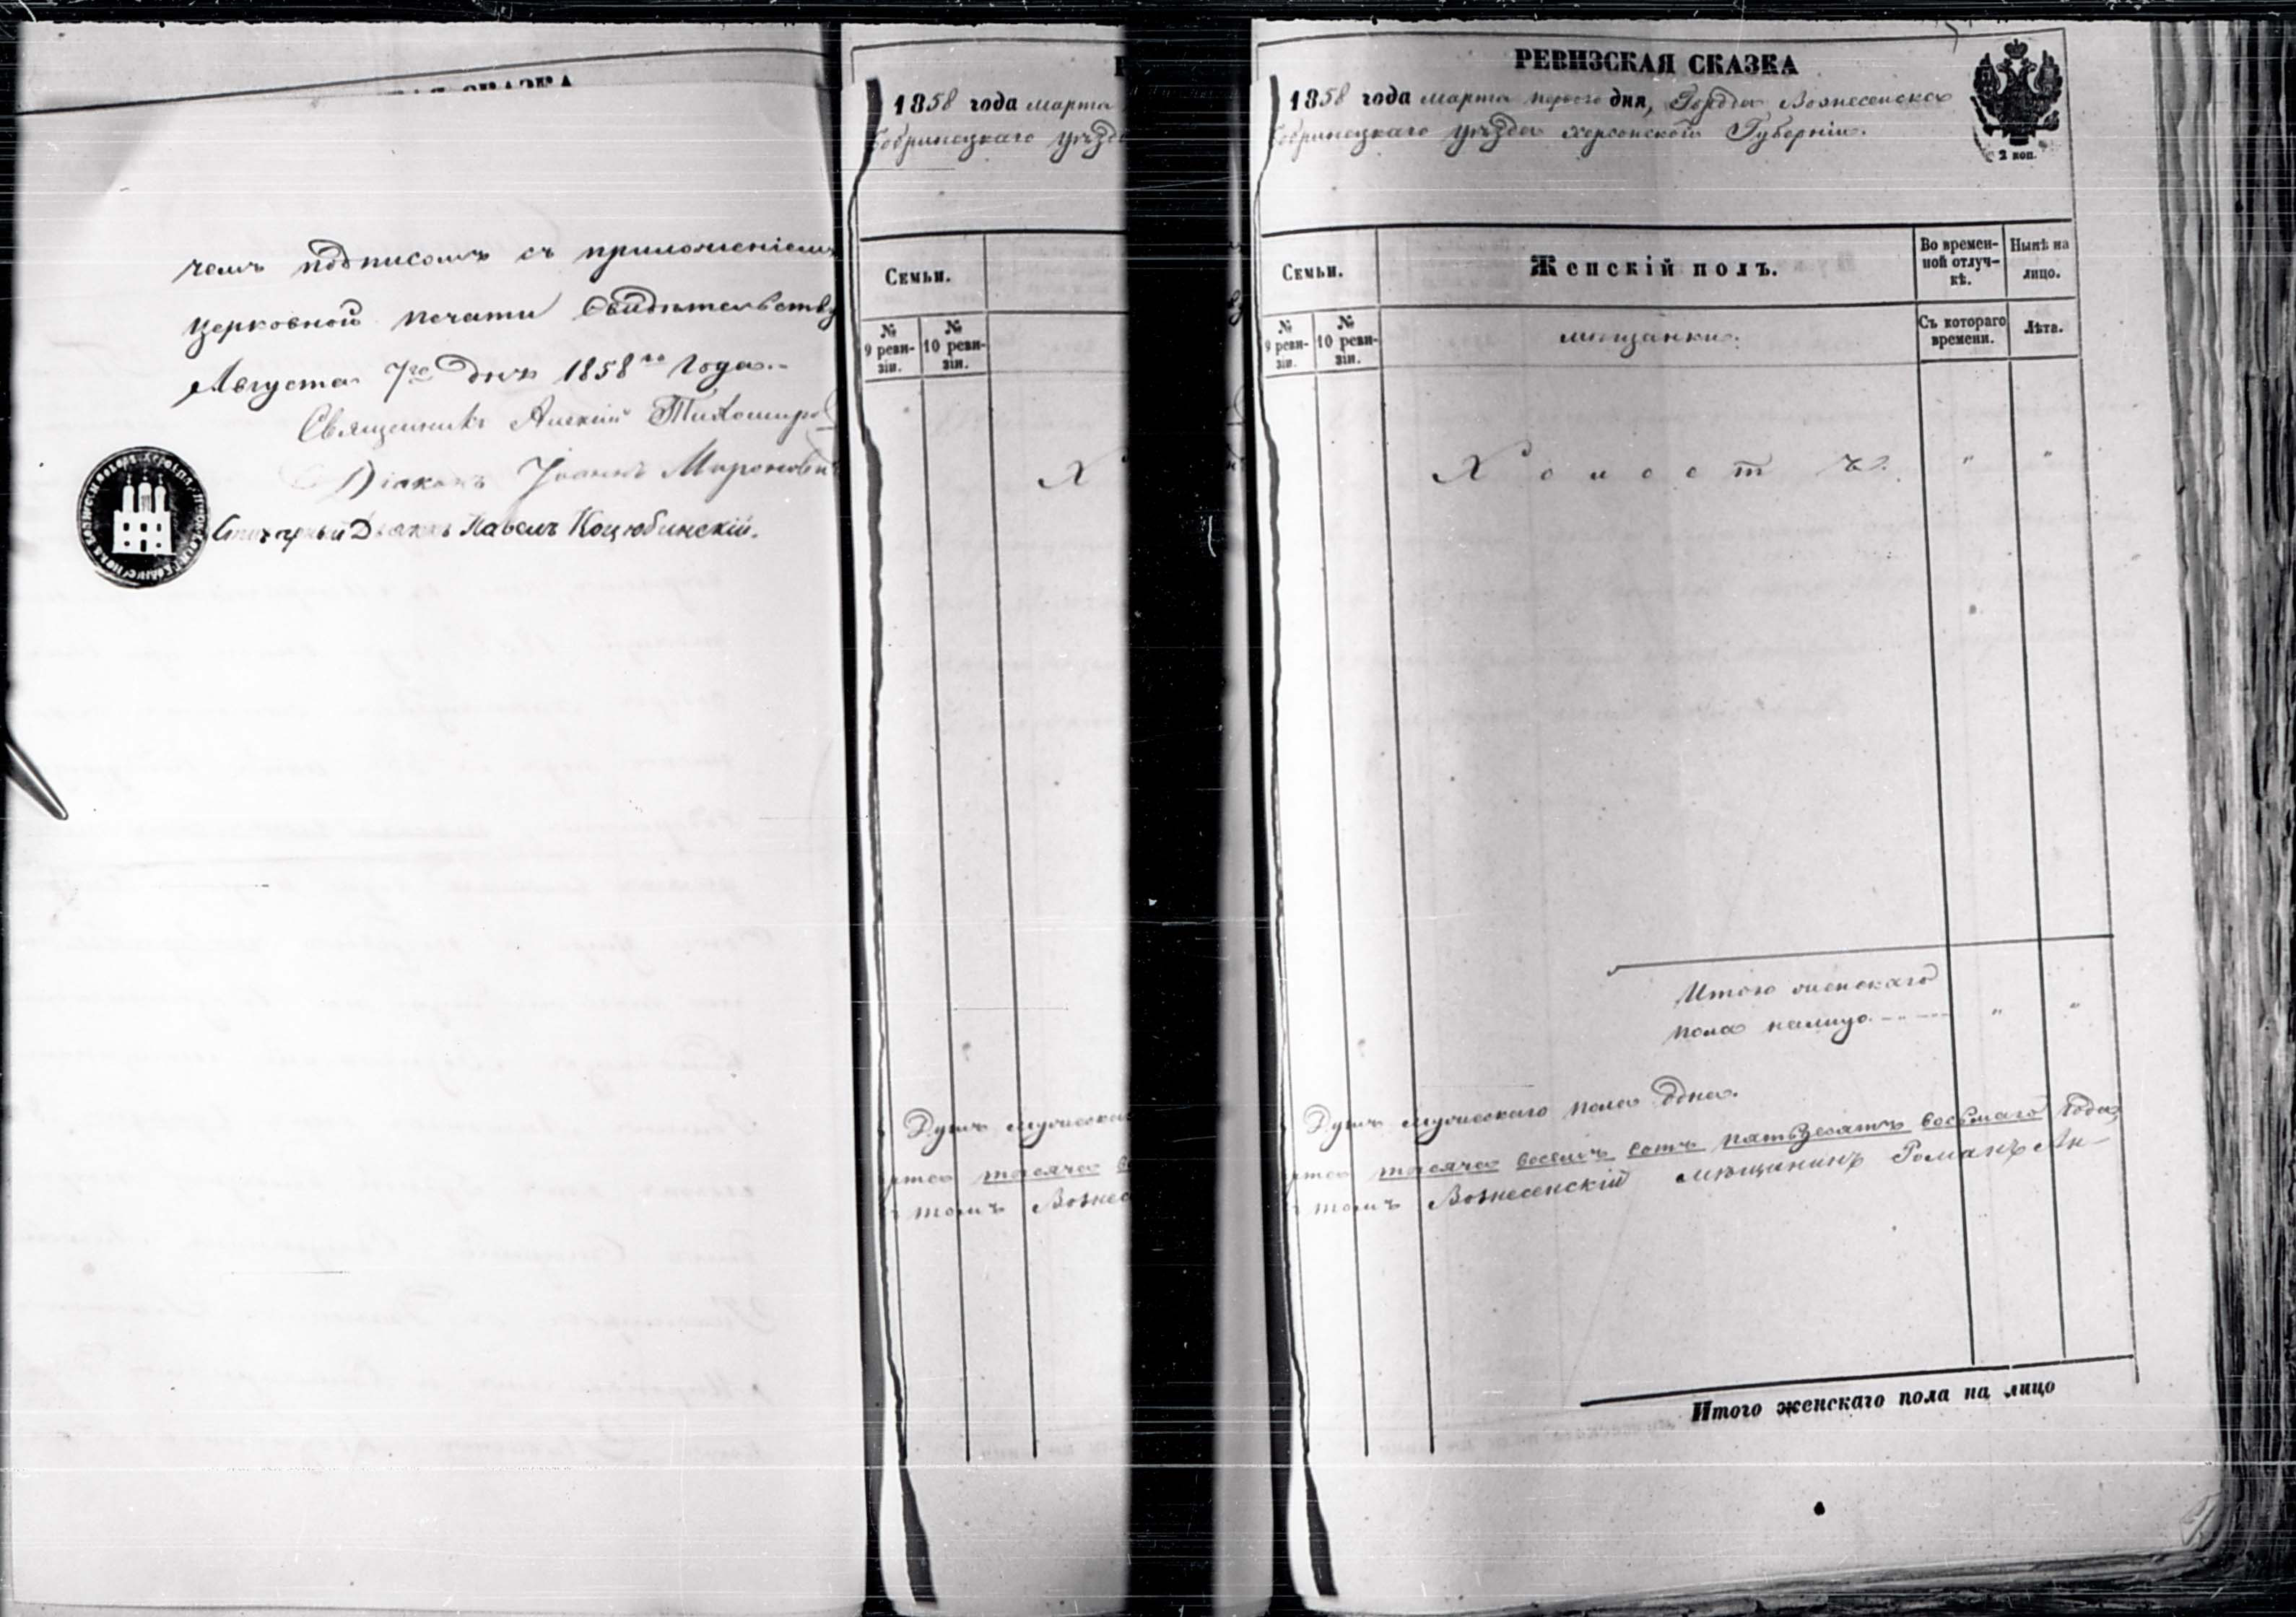 чемъ подписомъ съ приложеніемъ
церковной печати Свидѣтельству
Августа 7го дня 1858го Года.-
Священникъ Алексій Тихомиро
Діаконъ Іоаннъ Миронови
Дьякъ Павелъ Коцюбинскій.
1858 года марта
Бобринецкаго уѣзда
Семьи.
№ 9 реви-зіи.
№ 10 реви-зіи.
Х
Душъ мужеска
тысяча в
томъ Вознес
РЕВИЗСКАЯ СКАЗКА
1858 года марта перваго дня, Города Вознесенска
Бобринецкаго уѣзда Херсонской Губерніи.
2 коп.
Семьи.
Женскій полъ.
Во времен-ной отлуч-кѣ.
Нынѣ на лицо.
№ 9 реви-зіи.
№ 10 реви-зіи.
мѣщанки.
Съ котораго времени.
Лѣта.
Х о л о с т ъ. " "
Итого женскаго
пола налицо. " "
Душъ мужескаго пола одна.
тысяча восемь сотъ пятьдесятъ восьмаго Года,
томъ Вознесенскій мѣщанинъ Романъ Ан-
Итого женскаго пола на лицо